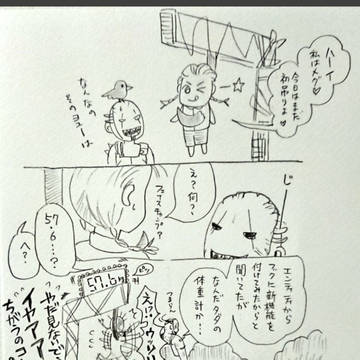 ハーイ
私はメグ♡
今日はまた
初吊りよ♡
なんなの
そのヨユーは
じ
え?何?
57.6…?
へ?
エンティティから
フックに新機能を
付けてみたからと
聞いてたが
なんだタダの
体重計か…
57.6kg
やだ見ないで
イヤアア
ちがうのコ